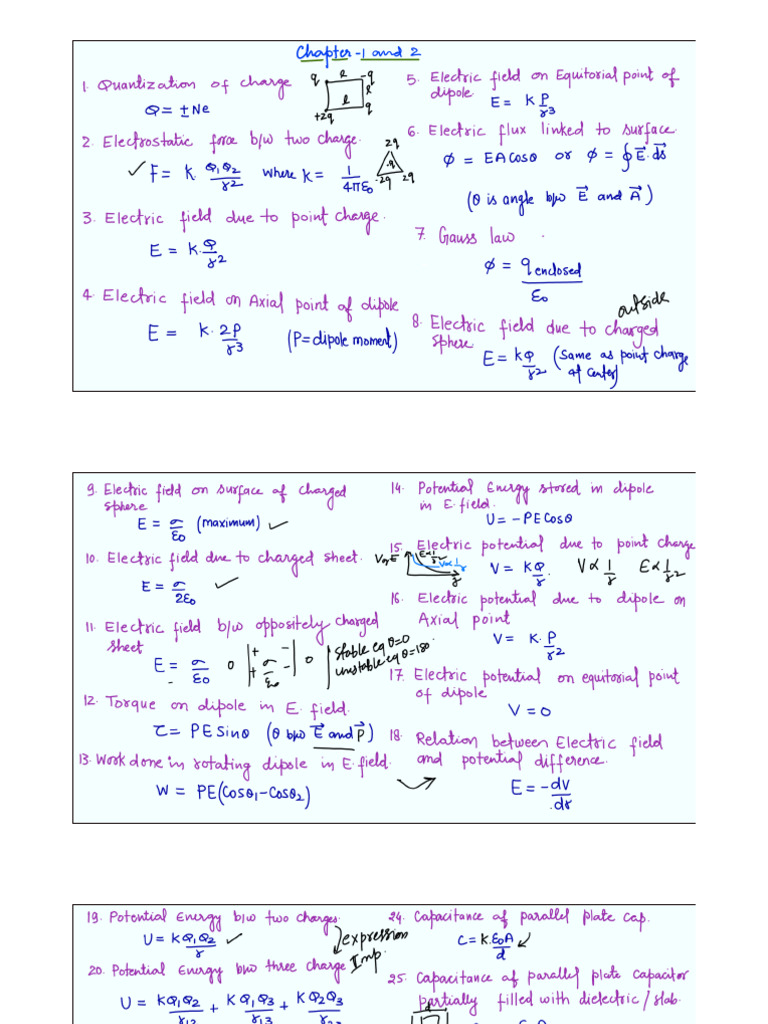 Chapter-1 and 2
1. Quantization of charge
Q = ± Ne
q l -q
l
l
+2q q
2. Electrostatic force b/w two charge.
F = K. Q₁Q₂/r² where K = 1/4πε₀
2q
q
-2q 2q
3. Electric field due to point charge.
E = K.Q/r²
4. Electric field on Axial point of dipole
E = K. 2P/r³ (P=dipole moment)
5. Electric field on Equitorial point of
dipole
E = K P/r³
6. Electric flux linked to surface.
Φ = EA Cosθ or Φ = ∮E⃗.ds⃗
(θ is angle b/w E⃗ and A⃗)
7. Gauss law
Φ = q enclosed/ε₀
outside
8. Electric field due to charged
sphere
E = KQ/r² (Same as point charge
at center)
9. Electric field on surface of charged
sphere
E = σ/ε₀ (maximum)
10. Electric field due to charged sheet.
E = σ/2ε₀
11. Electric field b/w oppositely charged
sheet
E = σ/ε₀ 0 + + σ/ε₀ - - 0
stable eq θ=0
unstable eq θ=180
12. Torque on dipole in E. field.
τ = PE Sinθ (θ b/w E⃗ and P⃗)
13. Work done in rotating dipole in E. field.
W = PE(Cosθ₁-Cosθ₂)
14. Potential Energy stored in dipole
in E. field.
U = -PE Cosθ
15. Electric potential due to point charge
V = KQ/r. V∝1/r E∝1/r²
V or E
V∝1/r
r
16. Electric potential due to dipole on
Axial point
V = K.P/r²
17. Electric potential on equitorial point
of dipole
V = 0
18. Relation between Electric field
and potential difference.
E = -dV/dr
19. Potential Energy b/w two charges.
U = KQ₁Q₂/r
expression
Imp.
20. Potential Energy b/w three charge
U = KQ₁Q₂/r₁₂ + KQ₁Q₃/r₁₃ + KQ₂Q₃/r₂₃
24. Capacitance of parallel plate cap.
C = K.ε₀A/d
25. Capacitance of parallel plate capacitor
partially filled with dielectric/slab.
d
ε₀A